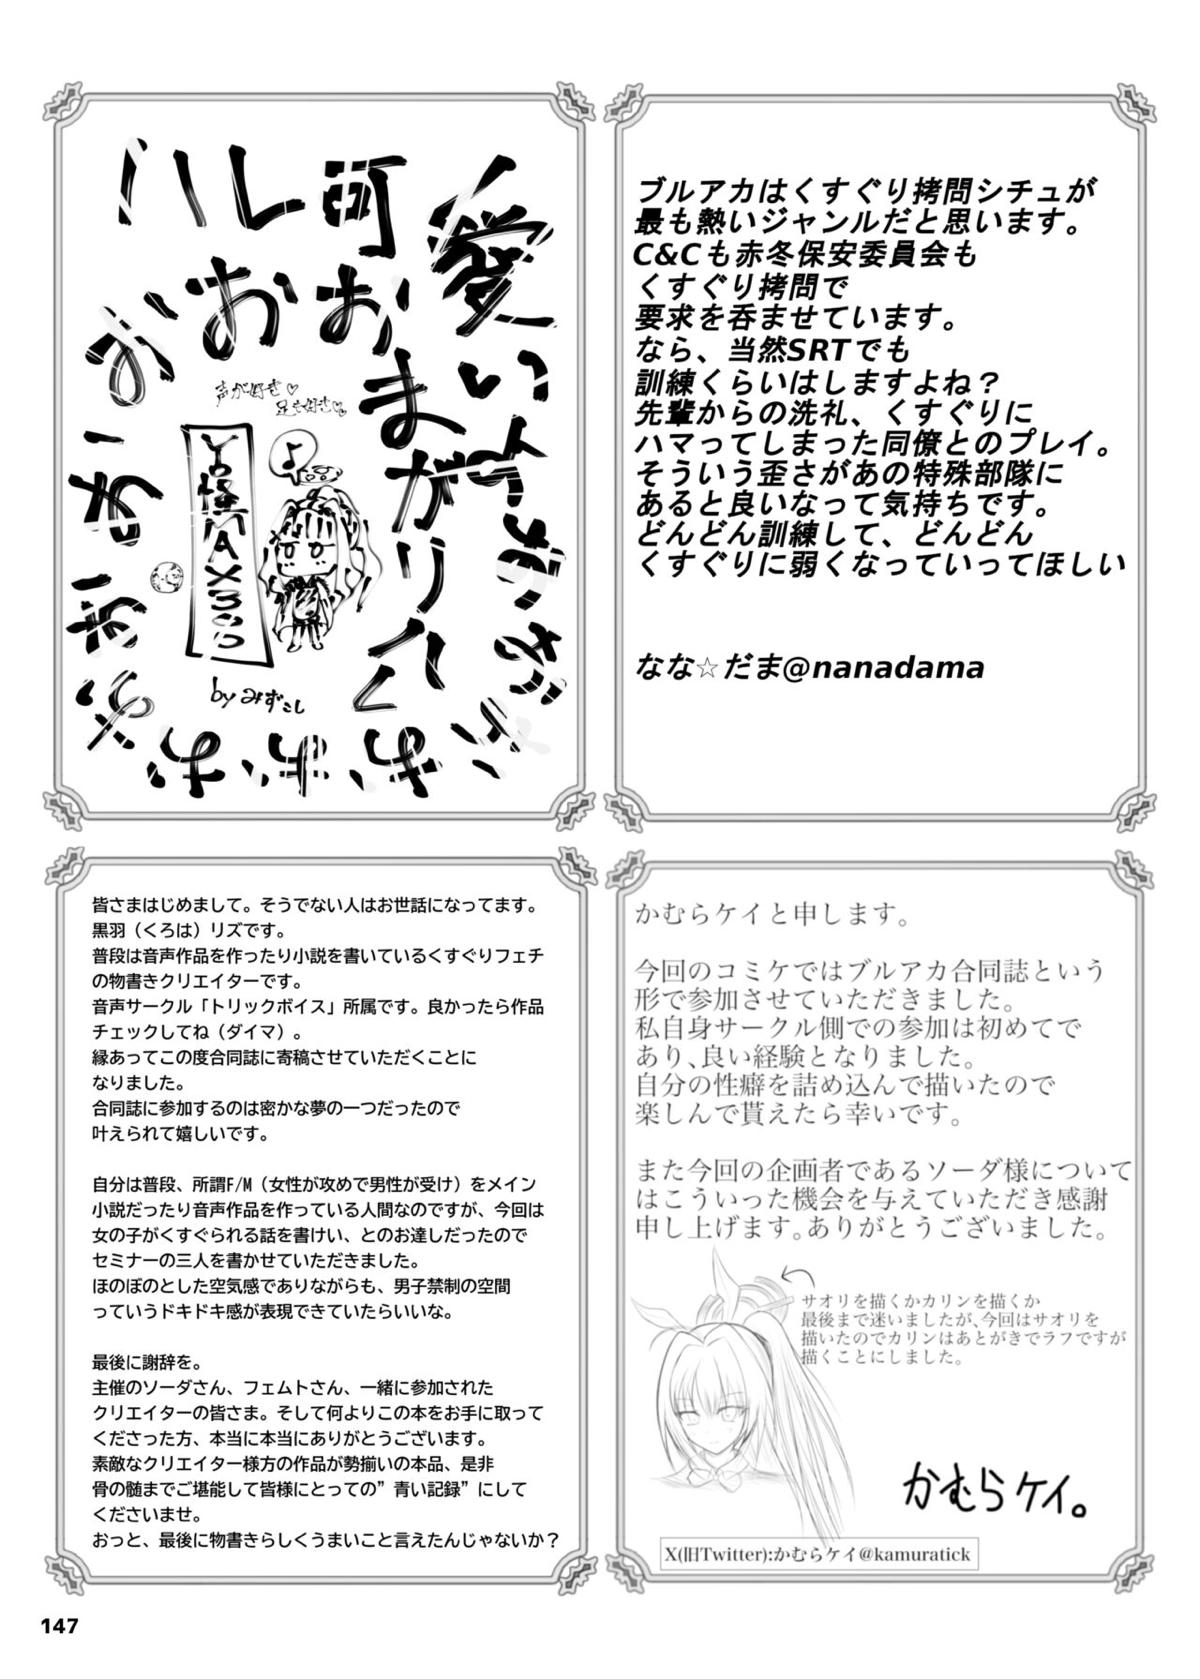 ハレ可愛い
声が好き♡
足も好き♡
by みずこし
ブルアカはくすぐり拷問シチュが
最も熱いジャンルだと思います。
C&Cも赤冬保安委員会も
くすぐり拷問で
要求を呑ませています。
なら、当然SRTでも
訓練くらいはしますよね？
先輩からの洗礼、くすぐりに
ハマってしまった同僚とのプレイ。
そういう歪さがあの特殊部隊に
あると良いなって気持ちです。
どんどん訓練して、どんどん
くすぐりに弱くなっていってほしい
なな☆だま@nanadama
皆さまはじめまして。そうでない人はお世話になってます。
黒羽（くろは）リズです。
普段は音声作品を作ったり小説を書いているくすぐりフェチ
の物書きクリエイターです。
音声サークル「トリックボイス」所属です。良かったら作品
チェックしてね（ダイマ）。
縁あってこの度合同誌に寄稿させていただくことに
なりました。
合同誌に参加するのは密かな夢の一つだったので
叶えられて嬉しいです。
自分は普段、所謂F/M（女性が攻めで男性が受け）をメイン
小説だったり音声作品を作っている人間なのですが、今回は
女の子がくすぐられる話を書けい、とのお達しだったので
セミナーの三人を書かせていただきました。
ほのぼのとした空気感でありながらも、男子禁制の空間
っていうドキドキ感が表現できていたらいいな。
最後に謝辞を。
主催のソーダさん、フェムトさん、一緒に参加された
クリエイターの皆さま。そして何よりこの本をお手に取って
くださった方、本当に本当にありがとうございます。
素敵なクリエイター様方の作品が勢揃いの本品、是非
骨の髄までご堪能して皆様にとっての”青い記録”にして
くださいませ。
おっと、最後に物書きらしくうまいこと言えたんじゃないか？
かむらケイと申します。
今回のコミケではブルアカ合同誌という
形で参加させていただきました。
私自身サークル側での参加は初めてで
あり､良い経験となりました。
自分の性癖を詰め込んで描いたので
楽しんで貰えたら幸いです。
また今回の企画者であるソーダ様について
はこういった機会を与えていただき感謝
申し上げます｡ありがとうございました。
サオリを描くかカリンを描くか
最後まで迷いましたが､今回はサオリを
描いたのでカリンはあとがきでラフですが
描くことにしました。
かむらケイ。
X(旧Twitter):かむらケイ@kamuratick
147